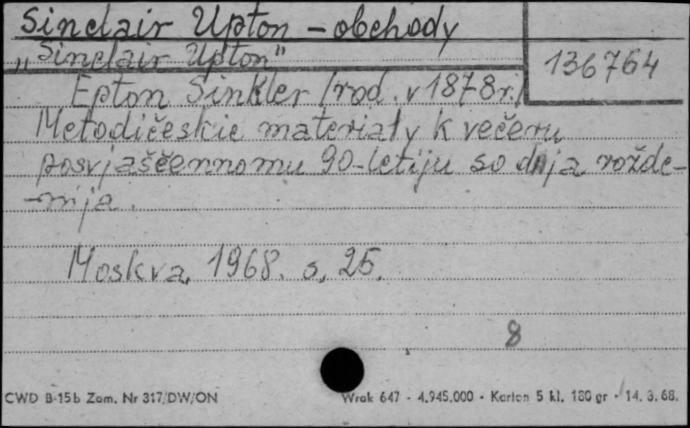 Sinclair Upton - obchody
"Sinclair Upton"
136764
Epton Sinkler (rod. v 1878 r.)
Metodičeskie materiały k večeru
posvjaščennomu 90-letiju so dnja rožde-
-nija.
Moskva, 1968. s. 25.
8
CWD B-15b Zam. Nr 317/DW/ON
Wrak 647 - 4.945.000 - Karton 5 kl. 180 gr - 14. 3. 68.